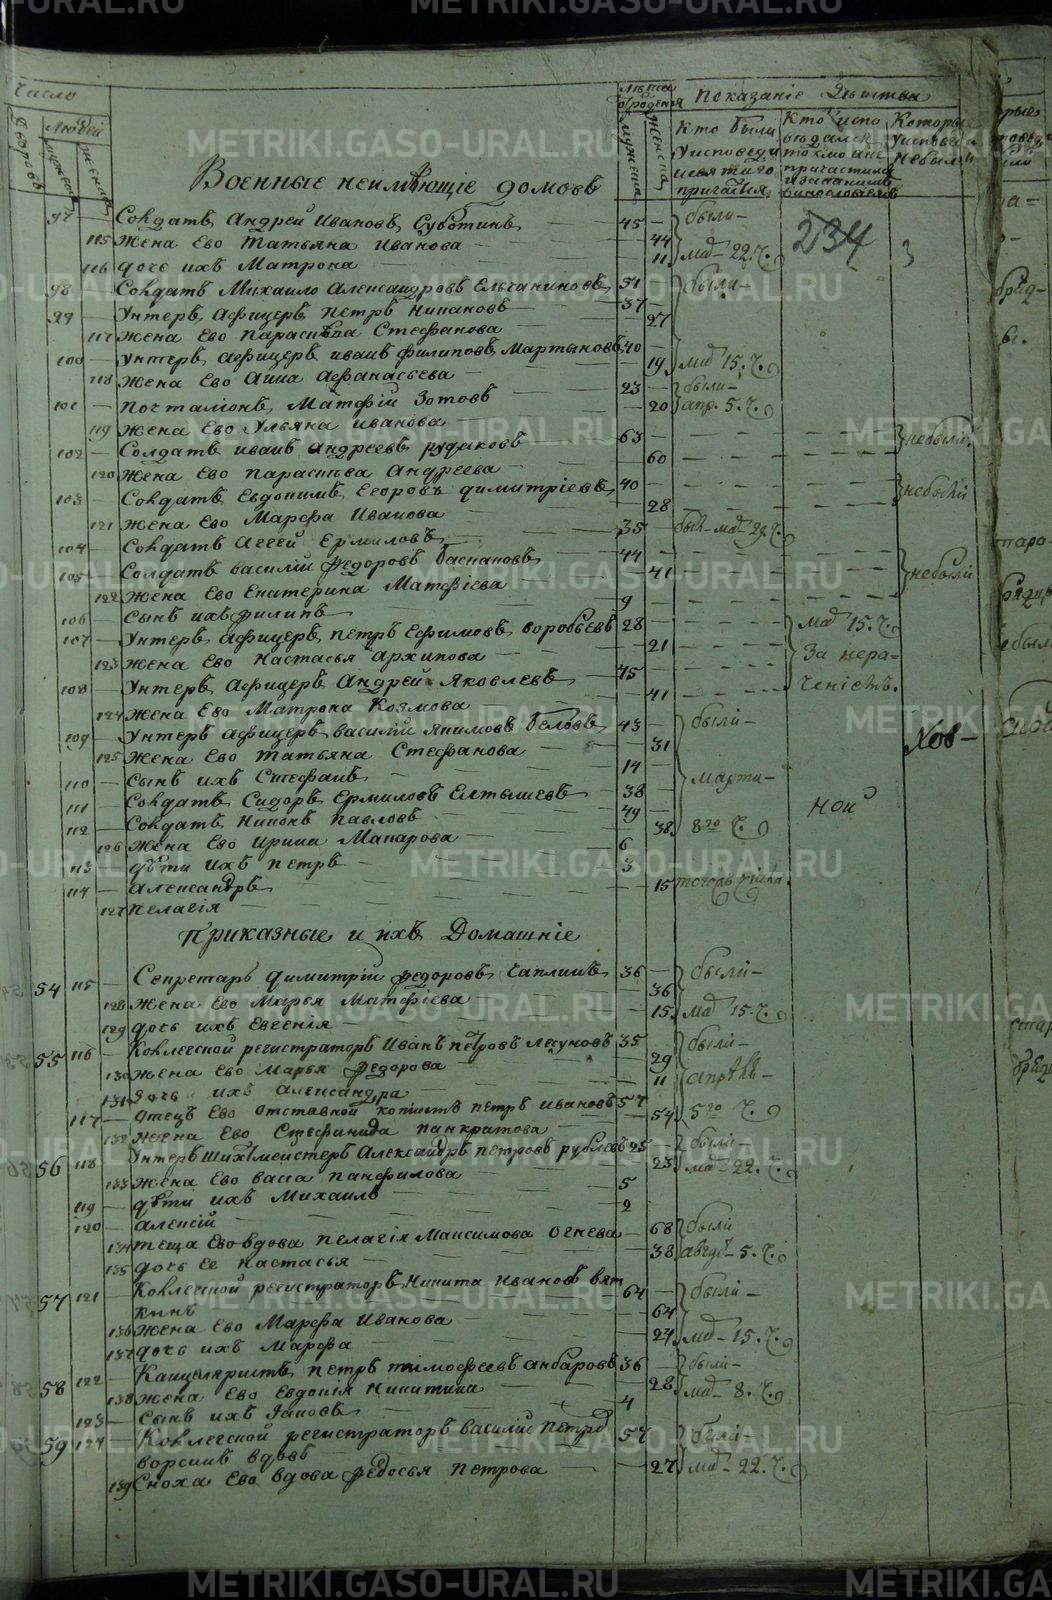 Число
Дворовъ
Людей
мужеска
женска
Лѣта от рожденія
мужеска
женска
Показаніе Дѣйства
Кто были у исповеди и святаго причастія
Кто исповѣдался токмо а не причастился и за какимъ винословіемъ
Которые у исповеди не были
Военные неимѣющіе домовъ
234
97 Солдатъ Андрей Ивановъ Субботинъ 45 были
115 Жена Ево Татьяна Иванова 44
116 дочь ихъ Матрона 11 маĩ 22. ч.
98 Солдатъ Михаило Александровъ Ельчаниновъ 51 были
99 Унтеръ Афицеръ Петръ Никановъ 37
117 Жена Ево Параскѣва Стефанова 27
100 Унтеръ афицеръ иванъ филиповъ Мартыновъ 40
118 Жена Ево Анна Афанасьева 19 маĩ 15. ч.
101 Почталионъ Матфій Зотовъ 23 были
119 Жена Ево Ульяна иванова 20 апр. 5. ч.
102 Солдатъ иванъ Андреевъ рудаковъ 63
120 Жена Ево Параскѣва Андреева 60 небыли
103 Солдатъ Евдокимъ Егоровъ димитріевъ 40
121 Жена Ево Марфа Иванова 28 небыли
104 Солдатъ Аггей Ермиловъ 35 былъ маĩ 29. ч.
105 Солдатъ василій федоровъ Баснановъ 44
122 Жена Ево Екатерина Матфіева 41 небыли
106 Сынъ ихъ филипъ 9
107 Унтеръ Афицеръ петръ Ефимовъ воробьевъ 28 маĩ 15. ч.
123 Жена Ево Настасья Архипова 21 За нера=
108 Унтеръ Афицеръ Андрей Яковлевъ 75 ченіемъ.
124 Жена Ево Матрона Козмова 41
109 Унтеръ Афицеръ василій Якимовъ Беловъ 43 были
125 Жена Ево Татьяна Стефанова 31
Хов-
110 Сынъ ихъ Стефанъ 14
111 Солдатъ Сидоръ Ермиловъ Елтышевъ 38 марти-
112 Солдатъ Никонъ Павловъ 49
ной
126 Жена Ево Ирина Макарова 38 8го ч.
113 дѣти ихъ петръ 6
114 Александръ 3
127 пелагія 15
Приказные и ихъ Домашніе
54 115 Секретарь Димитрій федоровъ Чаплинъ 36 были
128 Жена Ево Марья Матфіева 36
129 дочь ихъ Евгенія 15 маĩ 15. ч.
55 116 Коллегской регистраторъ Иванъ петровъ Лесуновъ 35 были
130 Жена Ево Марья федорова 29
131 дочь ихъ Александра 11 апрѣль
117 Отецъ Ево отставной копиистъ петръ ивановъ 57
132 Жена Ево Стефанида панкратова 54 5го ч.
56 118 Унтеръ Шихтмейстеръ Александръ петровъ рублевъ 25 были
133 Жена Ево васса панфилова 23 маĩ 22. ч.
119 дѣти ихъ Михаилъ 5
120 Алексій 2
134 теща Ево вдова Пелагія Максимова Огнева 68 были
135 дочь ее Настасья 38 август 5. ч.
57 121 Коллегской регистраторъ Никита ивановъ вят 64 были
кинъ
136 Жена Ево Марфа Иванова 64
137 дочь ихъ Марфа 24 маĩ 15. ч.
58 122 Канцеляристъ петръ тимофеевъ анбаровъ 36 были
138 Жена Ево Евдокія Никитина 28 маĩ 8. ч.
123 Сынъ ихъ Іаковъ 4
59 124 Коллегской регистраторъ Василій Петро 57 были
ворсинъ вдовъ
139 Сноха Ево вдова федосья Петрова 27 маĩ 22. ч.
METRIKI.GASO-URAL.RU